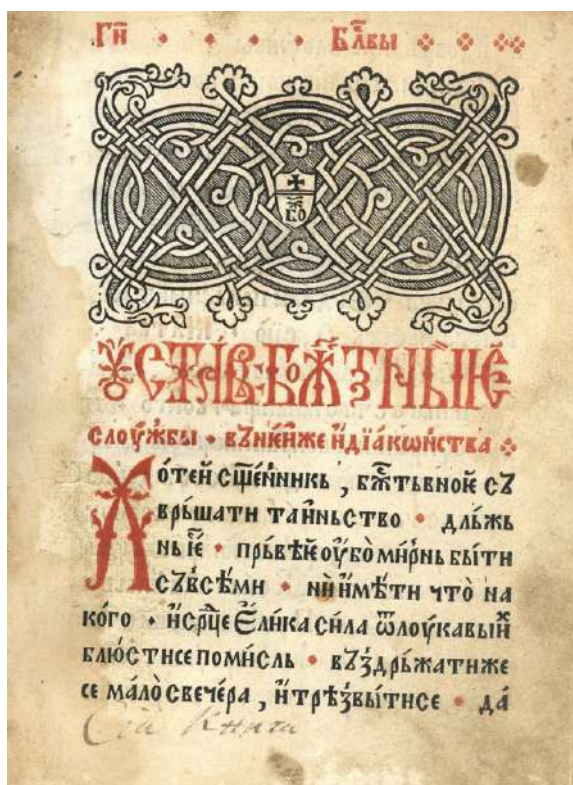 Гн҃ • • • • Бл҃вы
Б҃О
Уставь бж҃тьныѥ
слоу́жбы • въ нїе́йже и҆дїа́кѡнства
Хоте́й сщ҃е́нникь, бж҃тьвное съ
врьшати таи́ньство • дльжь
нь ѥ҆́ • прьвѣ́е оу҆́бо ми́рнь быти
съ всѣ́ми • ни и҆мѣ́ти что̀ на
ко́го • и҆ срд҃це е҆ли́ка си́ла ѿ лоу́кавыих
блюсти се по́мисль • въздрьжати же
се ма́ло с вечера, и҆ трѣ́звыти се • да́
Сіа Книга